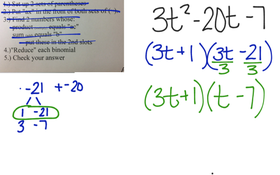 1.) Set up 2 sets of parentheses
2.) Put "ax" in the front of both sets of ( ).
3.) Find 2 numbers whose
product equals "ac"
sum equals "b"
put these in the 2nd slots
4.) "Reduce" each binomial
5.) Check your answer
3t² - 20t - 7
(3t + 1)(3t/3 - 21/3)
(3t + 1)(t - 7)
· -21 + -20
1 -21
3 -7